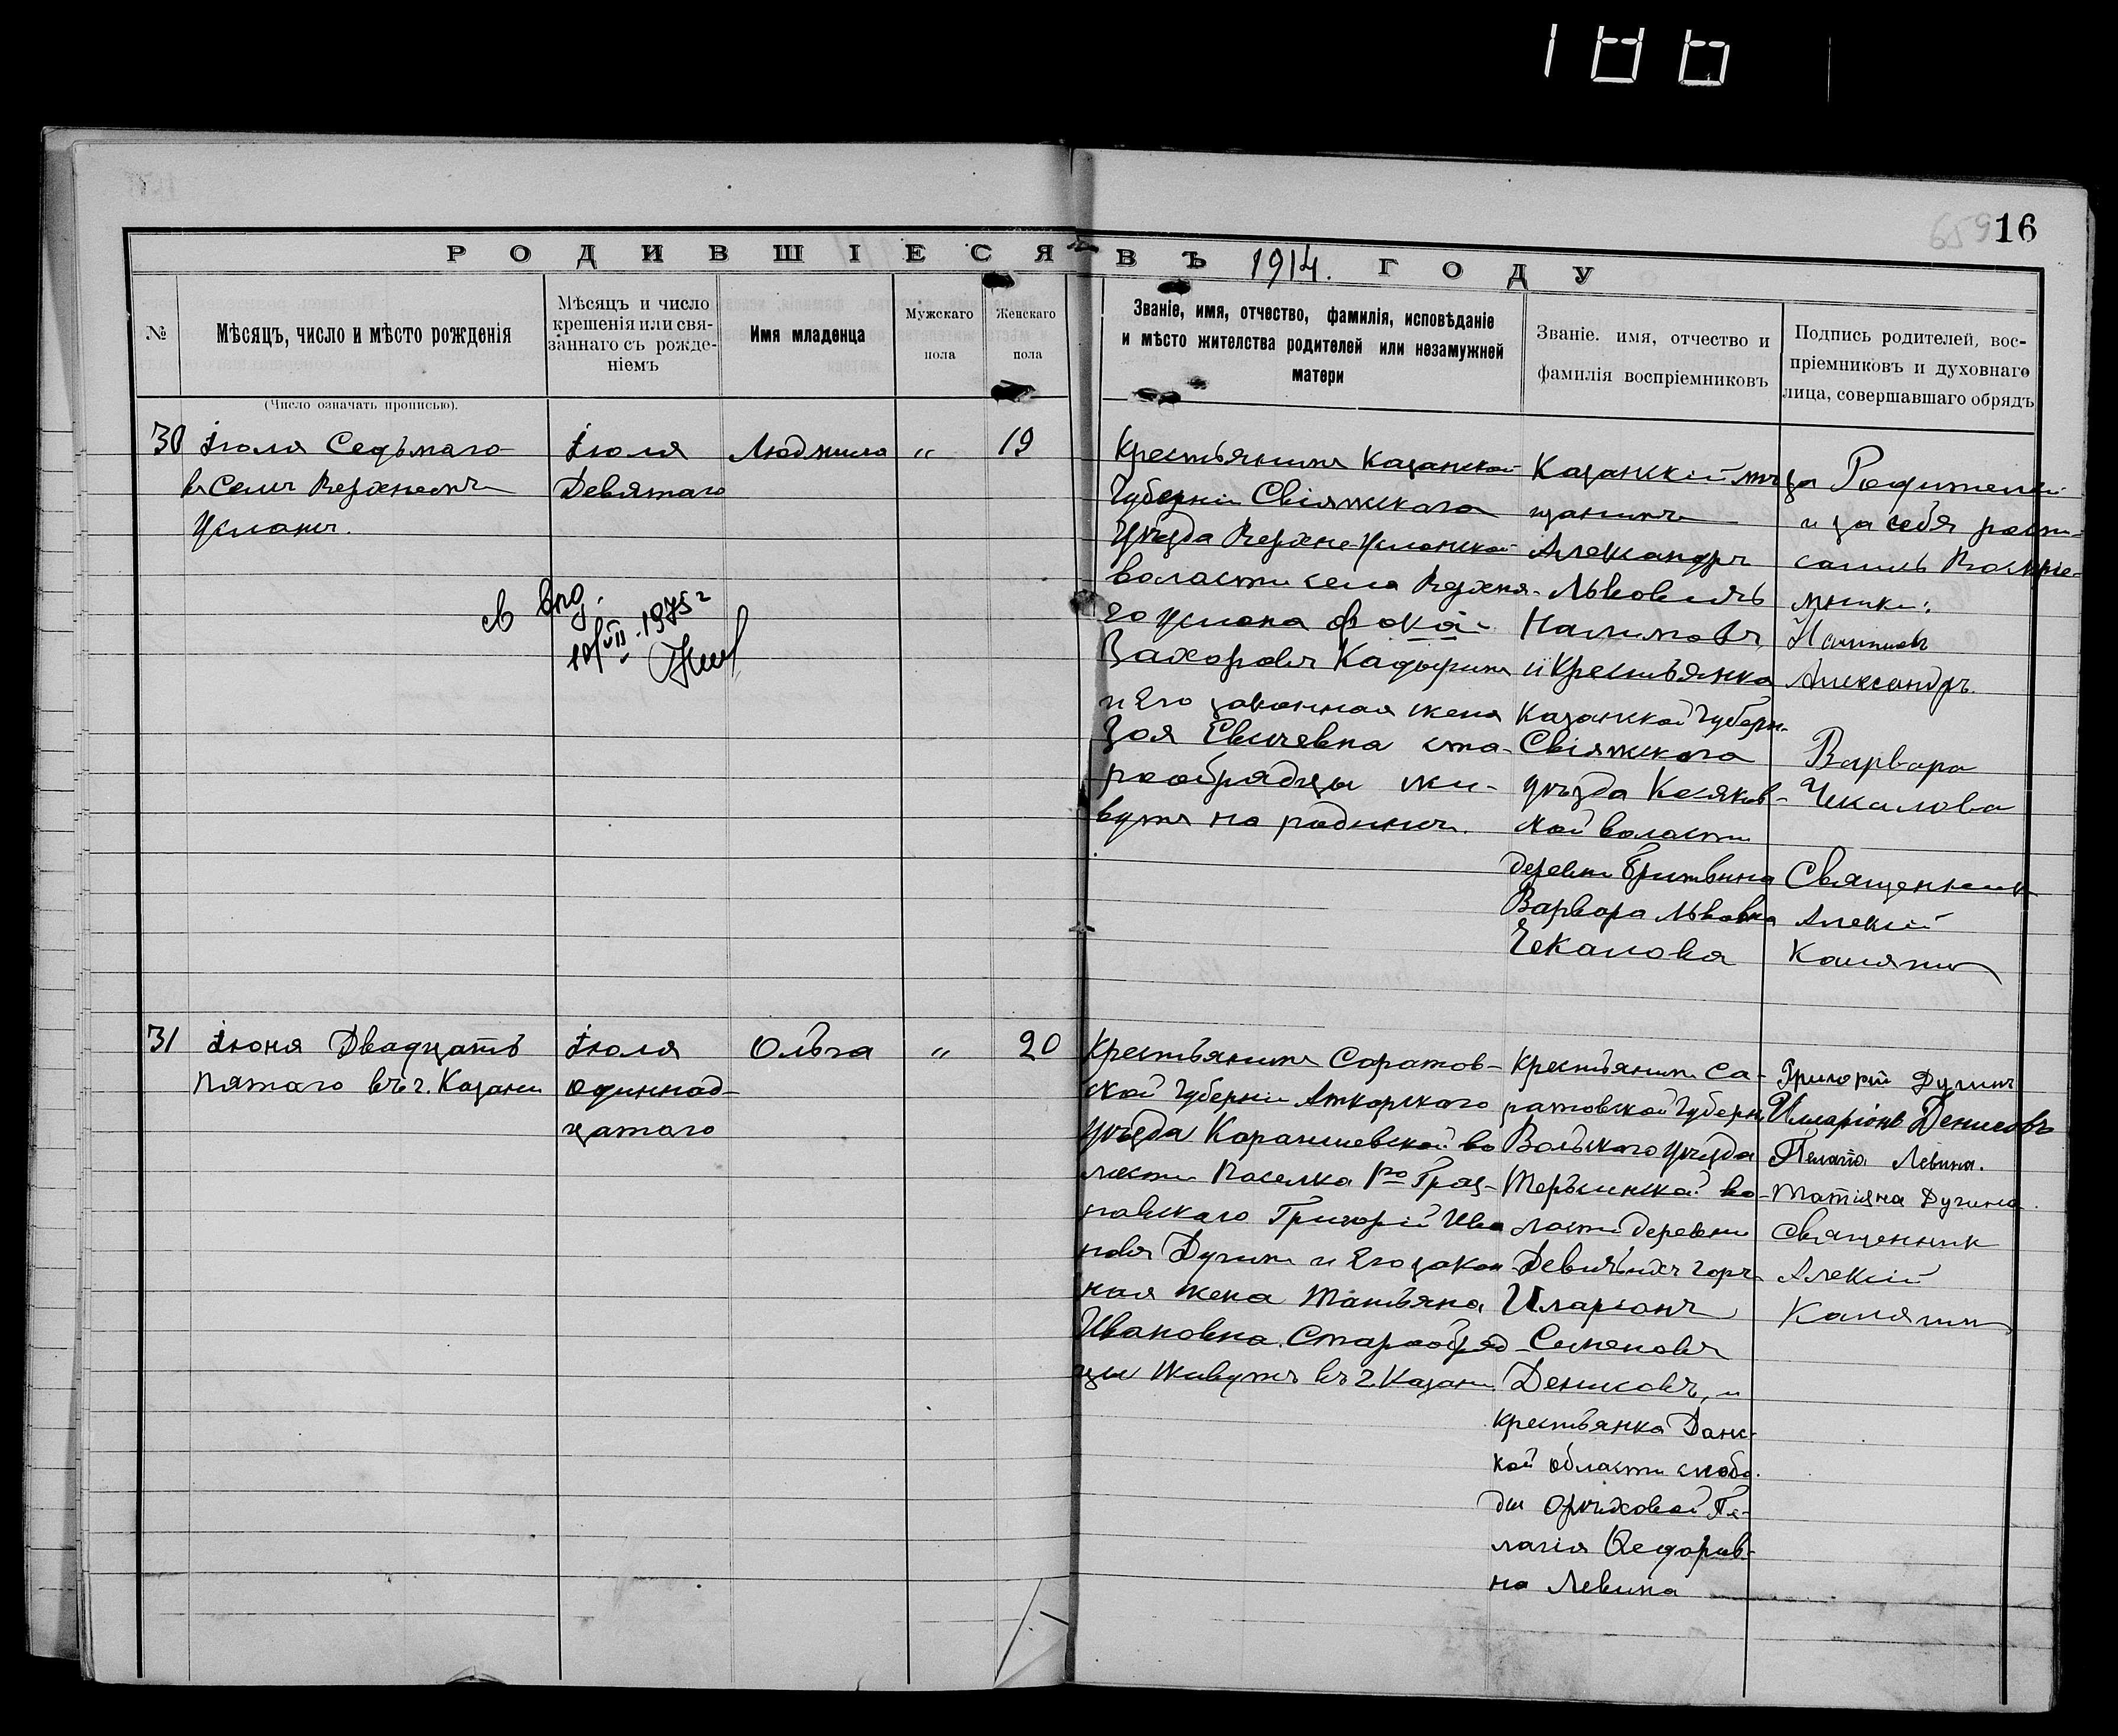 166
659
16
РОДИВШІЕСЯ ВЪ 1914. ГОДУ
№
Мѣсяцъ, число и мѣсто рожденія
(Число означать прописью).
Мѣсяцъ и число
крещенія или свя-
заннаго съ рожде-
ніемъ
Имя младенца
Мужскаго
пола
Женскаго
пола
Званіе, имя, отчество, фамилія, исповѣданіе
и мѣсто жителства родителей или незамужней
матери
Званіе. имя, отчество и
фамилія воспріемниковъ
Подпись родителей, вос-
пріемниковъ и духовнаго
лица, совершавшаго обрядъ
30
Іюля Седьмаго
въ Селѣ Верхнемъ
Услонѣ.
Іюля
Девятаго
Людмила
"
19
Крестьянинъ Казанской
Губерніи Свіяжскаго
Уѣзда Верхне-Услонской
волости села Верхня-
го Услона Фока
Захоровъ Кадыринъ
и Его законная жена
Зоя Евсеевна ста-
рообрядцы жи-
вутъ на родинѣ.
Казанскій мѣ-
щанинъ
Александръ
Львовичъ
Налимовъ,
и Крестьянка
Казанской Губерн.
Свіяжскаго
уѣзда Косяков-
ской волости
деревни Бритвина
Варвара Львовна
Чекалова
за Родителей
и за себя распи-
сались Воспріе-
мники:
Налимовъ
Александръ.
Варвара
Чекалова
Священникъ
Алексій
Калягин
св выд.
10/VII-1975 г
31
Іюня Двадцать
Пятаго въ г. Казани
Іюля
одиннад-
цатаго
Ольга
"
20
Крестьянинъ Саратов-
ской Губерніи Аткарскаго
уѣзда Карамышевской во
лости Поселка 1го Граз-
новскаго Григорій Ива
новъ Дугин и Его закон
ная жена Татьяна
Ивановна. Старообряд
цы Живутъ въ г. Казани.
Крестьянин Са-
ратовской Губерн.
Вольскаго уѣзда
Терсинской во-
лости деревни
Девичьихъ горъ
Иларіонъ
Семеновъ
Денисовъ, и
крестьянка Донс-
кой области слобо-
ды Орѣховой Пе-
лагія Федоров-
на Левина
Григорій Дугинъ
Иларіонъ Денисовъ
Пелагія Левина.
Татіяна Дугина
Священник
Алексій
Калягин